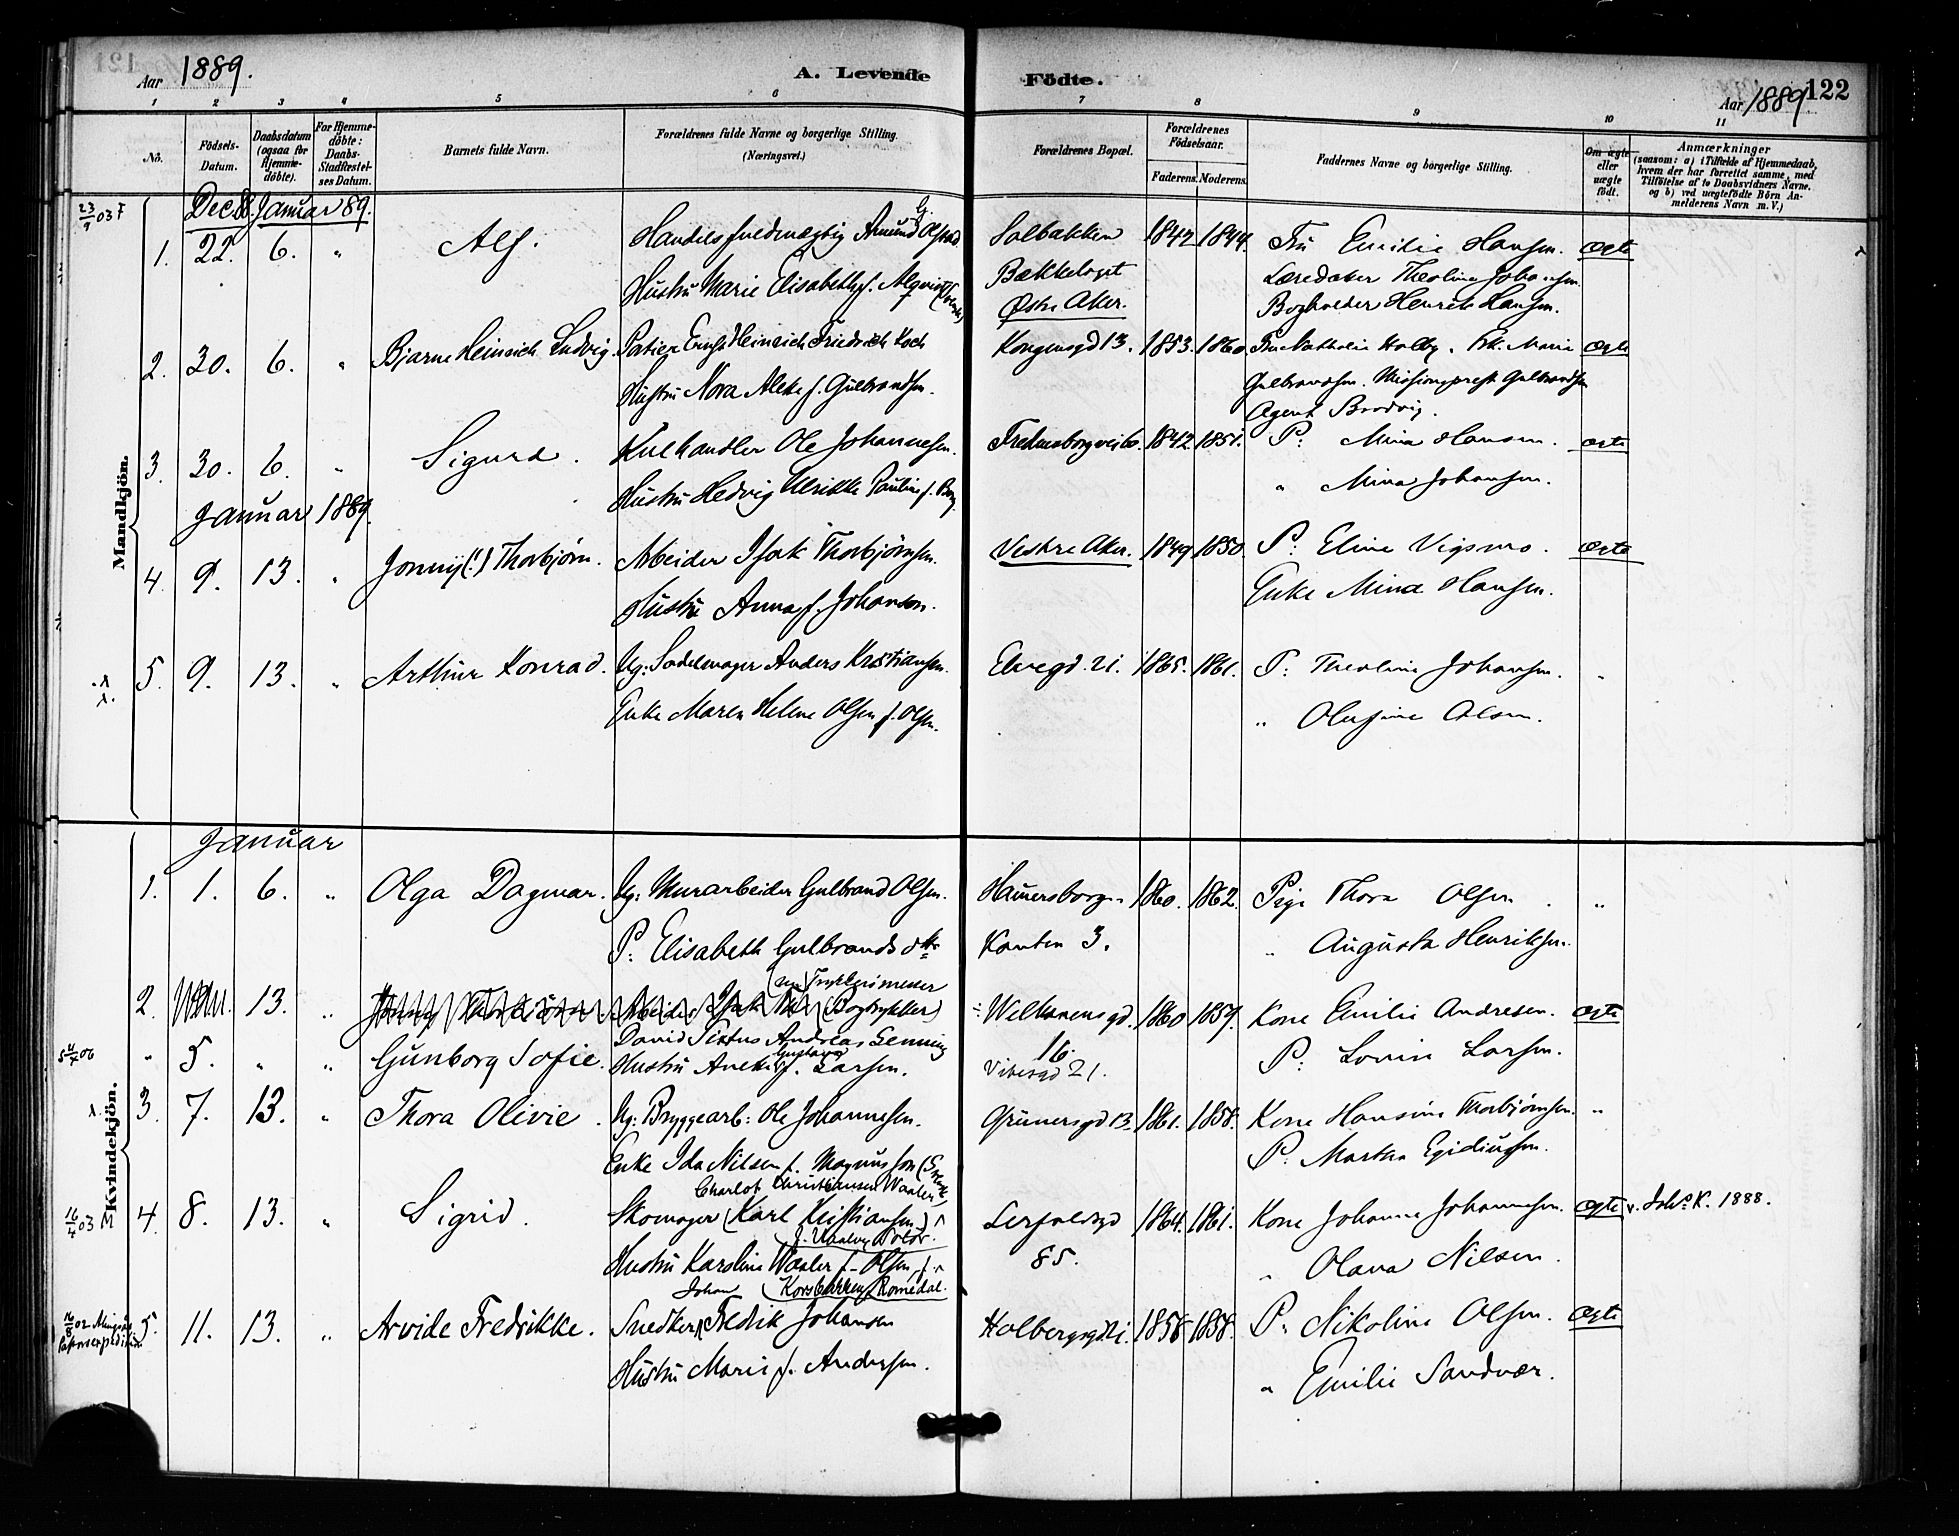 Aar 1889. A. Levende Födte. Aar 1889 122
1 2 3 4 5 6 7 8 9 10 11
No. Födsels-Datum. Daabsdatum (ogsaa for Hjemme-döbte). For Hjemme-döbte: Daabs-Stadfæstel-ses Datum. Barnets fulde Navn. Forældrenes fulde Navne og borgerlige Stilling. (Næringsvei.) Forældrenes Bopæl. Forældrenes Födselsaar. Faderens. Moderens. Faddernes Navne og borgerlige Stilling. Om ægte eller uægte födt. Anmærkninger (saasom: a) i Tilfælde af Hjemmedaab, hvem der har forrettet samme, med Tilföielse af to Daabsvidners Navne, og b) ved uægtefödte Börn An-melderens Navn m. V.)
Mandkjön.
23/9 03 F Dec. 88. Januar 89.
1. 22. 6. " Alf. Handelsfuldmægtig Amund Olstad Solbakken 1842 1844. Fru Emilie Hansen. ægte
Hustru Marie Elisabeth f. Alqvist Bækkelaget Theoline Johansen.
Østre Aker. Bogholder Henrik Hansen.
2. 30. 6. " Bjarne Heinrich Ludvig. Heinrich Friedrich Koch Kongensgd 13. 1853. 1860 Fru Nathalia Holby. Frk. Marie ægte
Hustru Nora f. Gulbrandsen. Gulbrandsen. Missionsprest Gulbrandsen
Agent Brodvig.
3. 30. 6. " Sigurd. Kulhandler Ole Johannesen. 1842 1851. P: Mina Hansen. ægte
Hustru Hedvig Ulrikke Pauline f. Berg. " Mina Johansen.
Januar 1889.
4. 9. 13. " Jonny (!) Thorbjørn. Arbeider Isak Thorbjørnsen. Vestre Aker. 1849 1850. P: Eline Vigsmo. ægte
Hustru Anna f. Johanson. Enke Mina Hansen.
5. 9. 13. " Arthur Konrad. Ug: Sadelmager Anders Kristiansen. Elvegd. 21. 1865. 1861. P: Theoline Johansen. "
Enke Maren Helene Olsen f. Olsen. " Olufine Olsen.
Kvindekjön.
Januar
1. 1. 6. " Olga Dagmar. Ug: Murarbeider Gulbrand Olsen. Hammersborg- 1860. 1862. Pige Thora Olsen. "
P: Elisabeth Gulbrandsdtr Kanten 3. " Augusta Henriksen.
2. 13. " (Bogtrykker) 1860 1859. Kone Emilie Andresen. ægte
" 5. " " Gunborg Sofie. David Sixtus Andreas Senning 16. P: Lovise Larsen.
Hustru f. Larsen. Vibesgd 21.
3. 7. 13. " Thora Olivie. Ug: Bryggearb: Ole Johannesen. Grünersgd 13. 1861. 1858. Kone Hansine Thorbjørnsen. "
Enke Ida Nilsen f. Magnusson P: Martha Egidiussen.
Charlot Christiansen Waaler
16/4 03 M 4. 8. 13. " Sigrid. Skomager (Karl Kristiansen) 1864. 1861. Kone Johanne Johannesen. ægte v. Joh.s K. 1888.
Hustru Karoline Waaler f. Olsen 85. " Olava Nilsen.
Johan Korsbakken Romedal.
5. 11. 13. " Arvide Fredrikke. Snedker Fredik Johansen Holbergsgd 1858. 1858. P: Nikoline Olsen. ægte
Hustru Marie f. Andersen. " Emilie Sandvær.